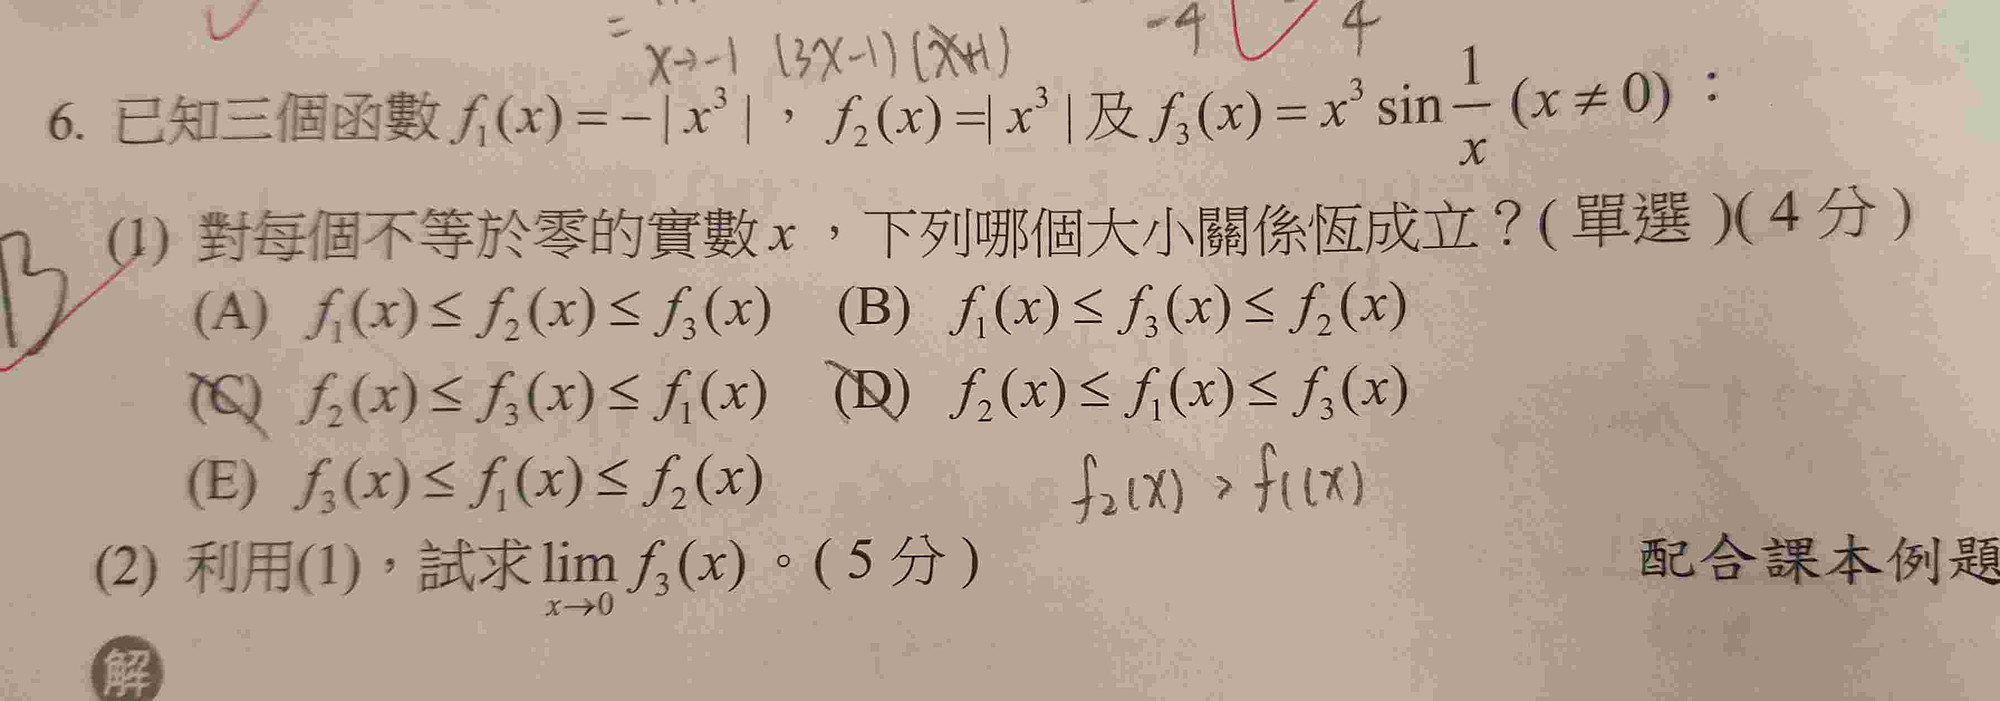 = x→-1 (3x-1)(x+1) -4 4
6. 已知三個函數 f₁(x) = -| x³ |，f₂(x) =| x³ | 及 f₃(x) = x³ sin 1/x (x ≠ 0)：
B (1) 對每個不等於零的實數 x ，下列哪個大小關係恆成立？( 單選 )( 4 分 )
(A) f₁(x) ≤ f₂(x) ≤ f₃(x) (B) f₁(x) ≤ f₃(x) ≤ f₂(x)
(C) f₂(x) ≤ f₃(x) ≤ f₁(x) (D) f₂(x) ≤ f₁(x) ≤ f₃(x)
(E) f₃(x) ≤ f₁(x) ≤ f₂(x) f₂(x) > f₁(x)
(2) 利用(1)，試求 lim x→0 f₃(x)。( 5 分 ) 配合課本例題
解